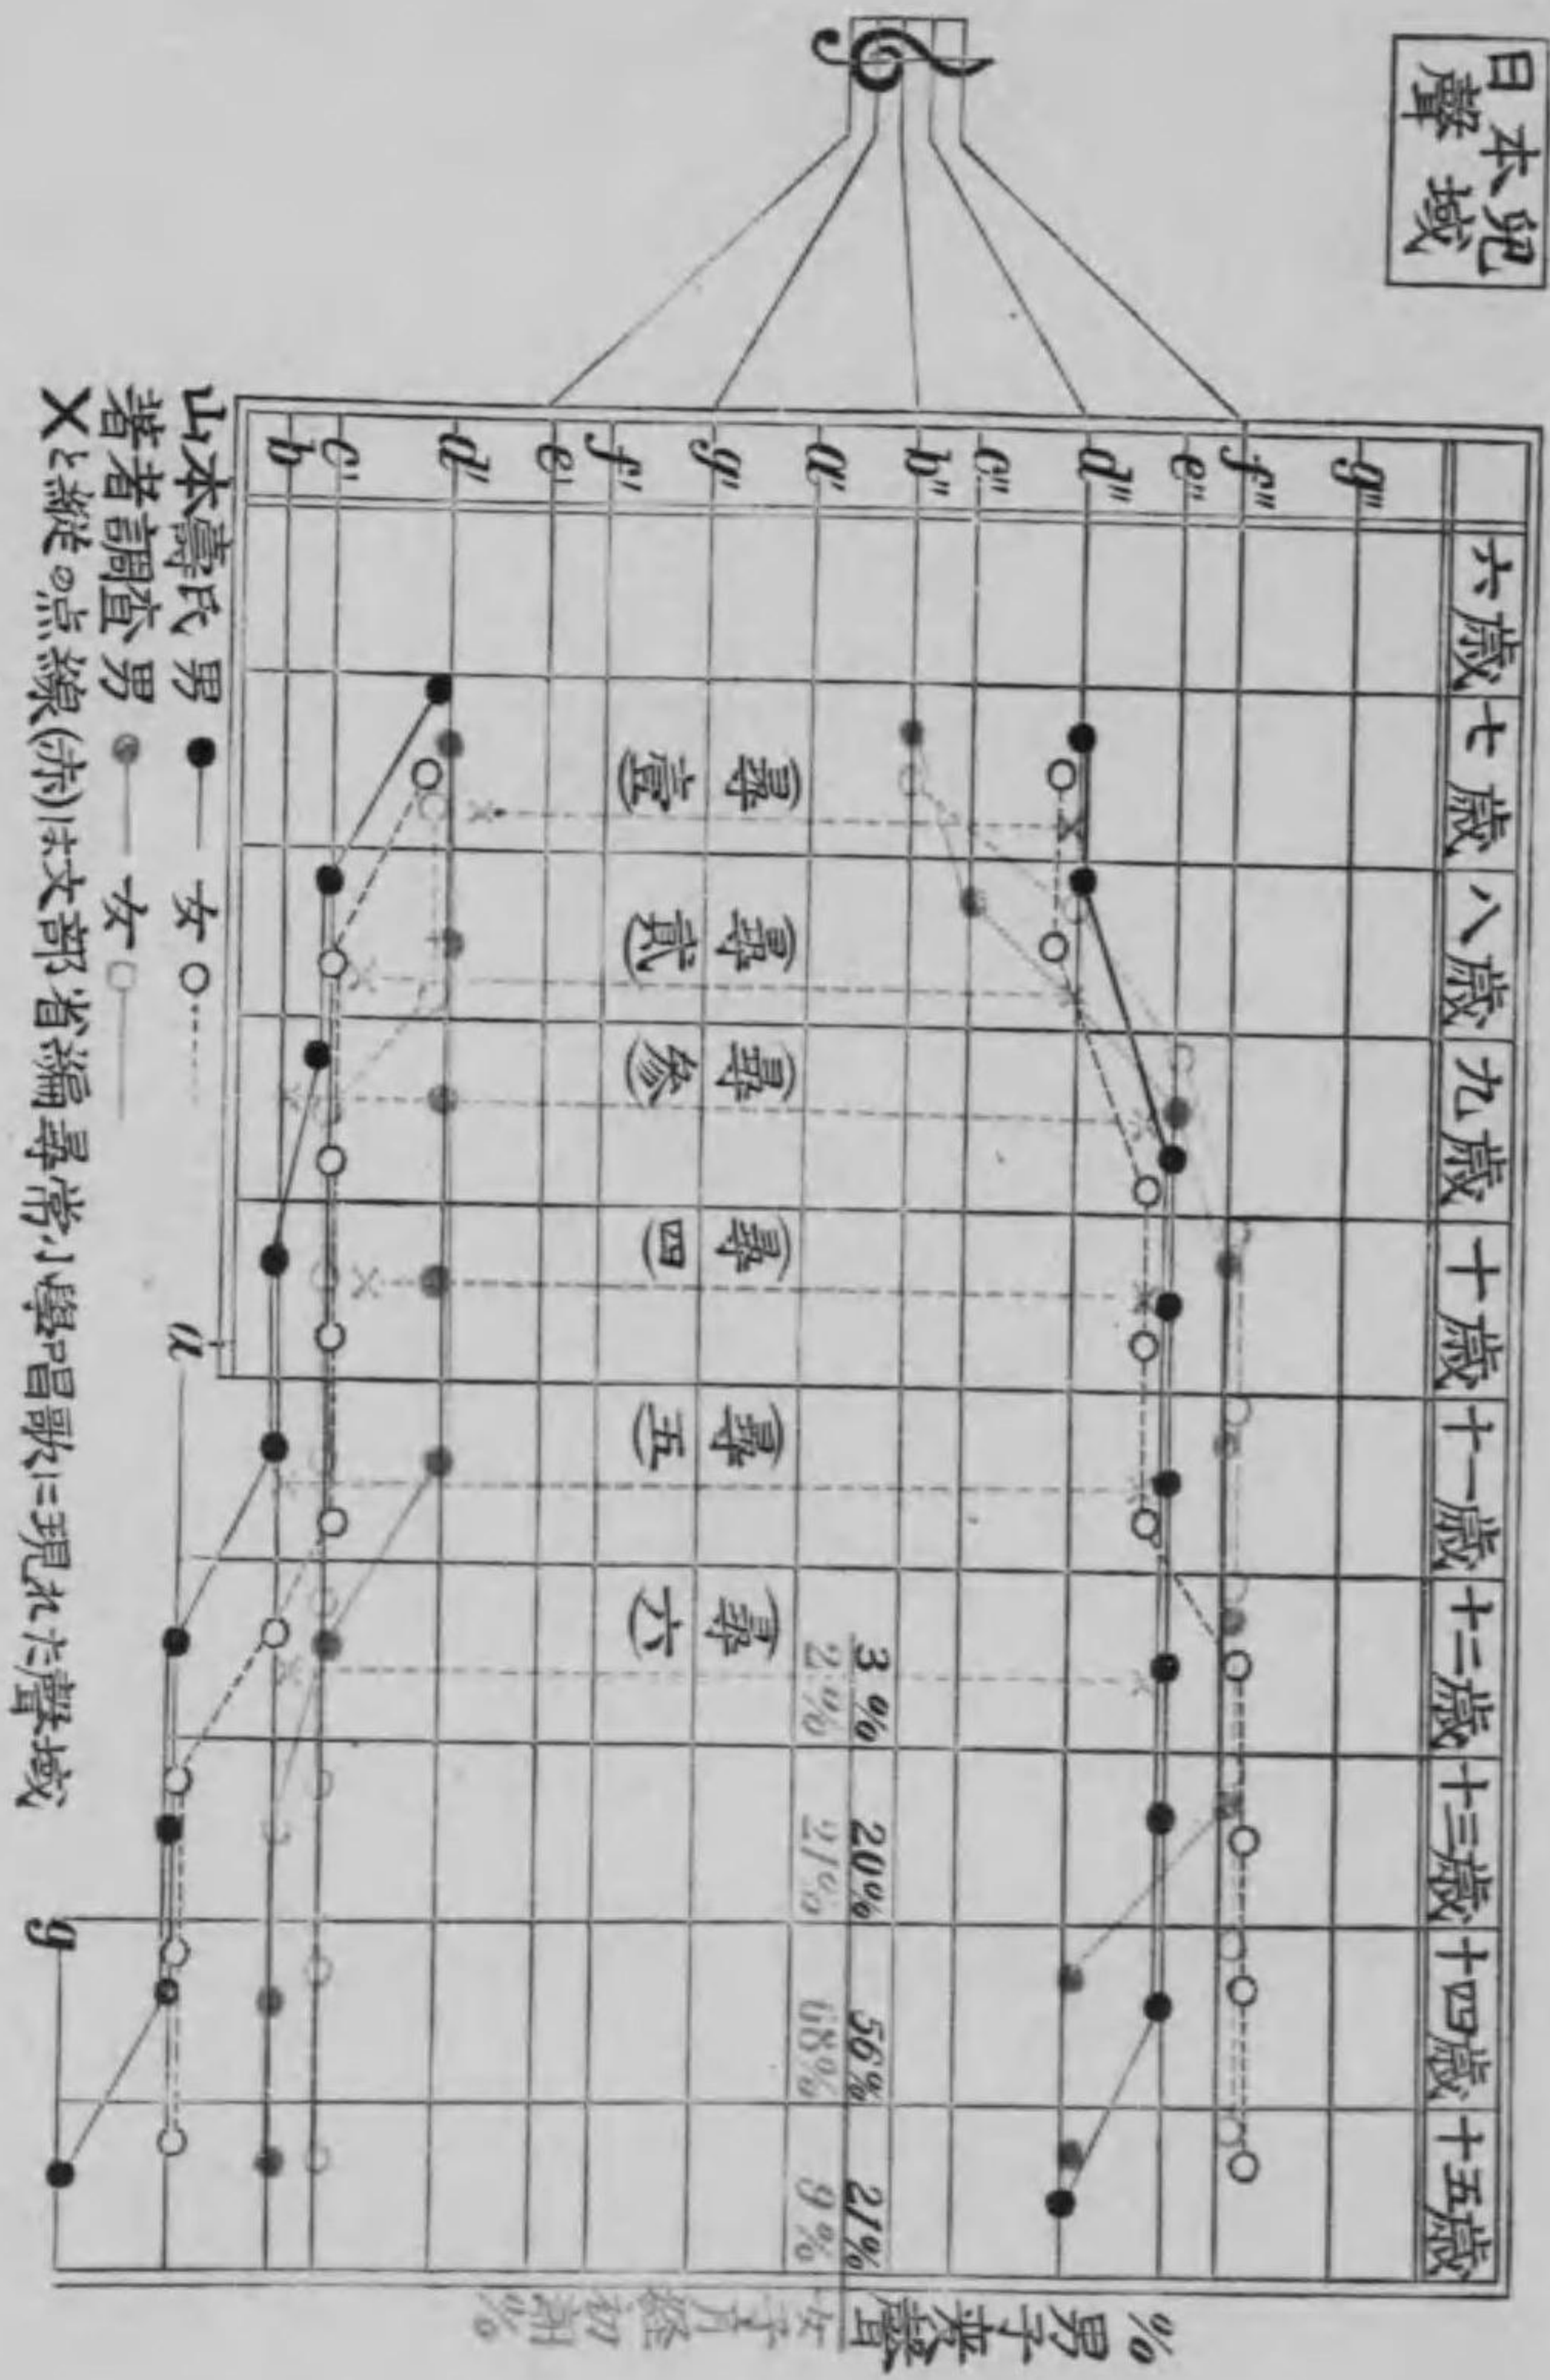 日本兒
聲域
六歳 七歳 八歳 九歳 十歳 十一歳 十二歳 十三歳 十四歳 十五歳
g''
f''
e''
d''
c''
b''
a'
g'
f'
e'
d'
c'
b
a
g
(尋壹) (尋貳) (尋參) (尋四) (尋五) (尋六)
3% 20% 56% 21%
2% 21% 68% 9%
%男子変聲
女子月經初潮%
山本壽氏 男 女
著者調査 男 女
×と縦の点線(赤)は文部省編尋常小學唱歌に現れた聲域